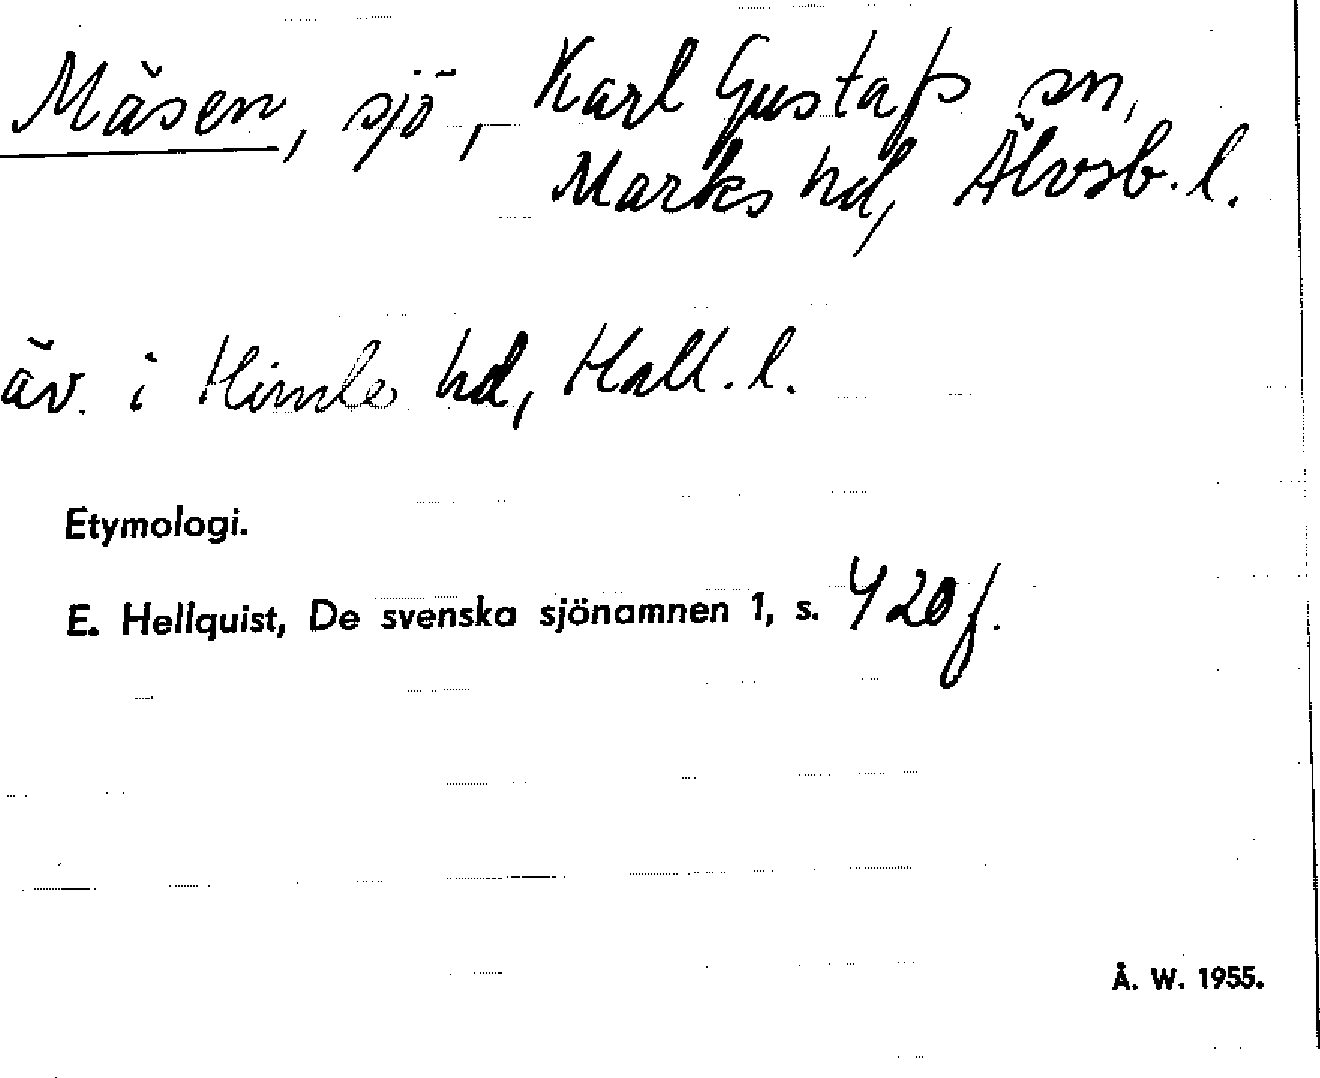 Mäsen, sjö, Karl Gustafs sn,
Marks hd, Älvsb. l.
äv. i Himle hd, Hall. l.
Etymologi.
E. Hellquist, De svenska sjönamnen 1, s. 420 f.
Å. W. 1955.